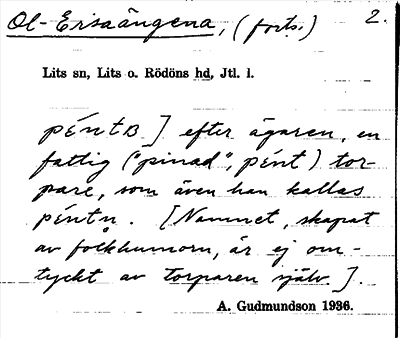 Ol-Ersaängena, (forts.) 2.
Lits sn, Lits o. Rödöns hd, Jtl. l.
péntʙ ] efter ägaren, en
fattig ("pinad", pént) tor-
pare, som även han kallas
péntn̥. [Namnet, skapat
av folkhumorn, är ej om-
tyckt av torparen själv.].
A. Gudmundson 1936.